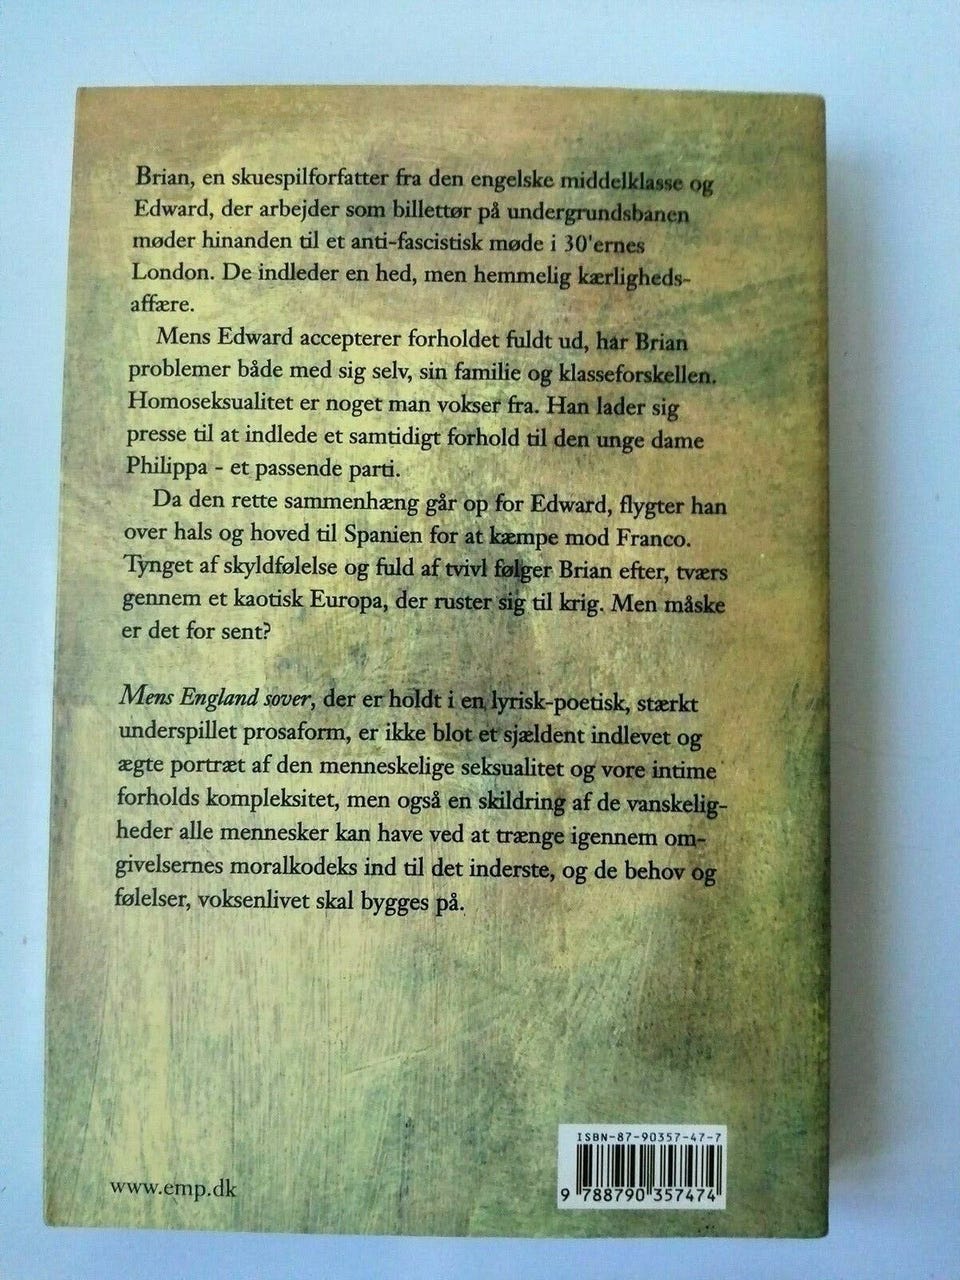 Brian, en skuespilforfatter fra den engelske middelklasse og
Edward, der arbejder som billettør på undergrundsbanen
møder hinanden til et anti-fascistisk møde i 30'ernes
London. De indleder en hed, men hemmelig kærligheds-
affære.
Mens Edward accepterer forholdet fuldt ud, har Brian
problemer både med sig selv, sin familie og klasseforskellen.
Homoseksualitet er noget man vokser fra. Han lader sig
presse til at indlede et samtidigt forhold til den unge dame
Philippa - et passende parti.
Da den rette sammenhæng går op for Edward, flygter han
over hals og hoved til Spanien for at kæmpe mod Franco.
Tynget af skyldfølelse og fuld af tvivl følger Brian efter, tværs
gennem et kaotisk Europa, der ruster sig til krig. Men måske
er det for sent?
Mens England sover, der er holdt i en lyrisk-poetisk, stærkt
underspillet prosaform, er ikke blot et sjældent indlevet og
ægte portræt af den menneskelige seksualitet og vore intime
forholds kompleksitet, men også en skildring af de vanskelig-
heder alle mennesker kan have ved at trænge igennem om-
givelsernes moralkodeks ind til det inderste, og de behov og
følelser, voksenlivet skal bygges på.
ISBN-87-90357-47-7
9 788790 357474
www.emp.dk